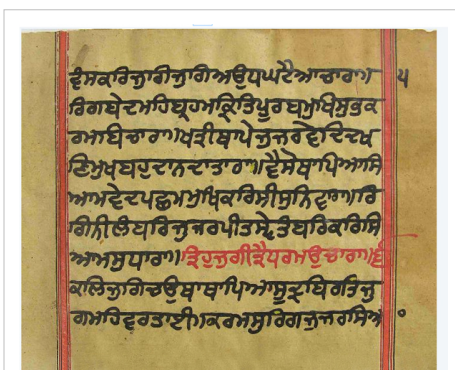 ਵੈਸਕਰਿਜੁਗਿਜੁਗਿਅਉਧਘਟੈਆਚਾਰਾ॥ ੫
ਰਿਗਬੇਦਮਹਿਬ੍ਰਹਮਕ੍ਰਿਤਿਪੂਰਬਮੁਖਿਸੁਭਕ
ਰਮਬਿਚਾਰਾ॥ਖਤ੍ਰੀਥਾਪੇਜੁਜਰਵੇਦਿਦਖ
ਣਿਮੁਖਬਹੁਦਾਨਦਾਤਾਰਾ॥ਵੈਸੋਥਾਪਿਆਸਿ
ਆਮਵੇਦਪਛਮਮੁਖਿਕਰਿਸੀਸੁਨਿਵਾਰਾ॥ਰਿ
ਗਿਨੀਲੰਬਰਿਜੁਜਰਪੀਤਸ੍ਵੇਤੰਬਰਿਕਰਿਸਿ
ਆਮਸੁਧਾਰਾ॥ਤ੍ਰਿਹੁਜੁਗੀਤ੍ਰੈਧਰਮਉਚਾਰਾ॥੬
ਕਲਿਜੁਗਿਚਉਥਾਥਾਪਿਆਸੂਦ੍ਰਬਿਰਤਿਜੁ
ਗਮਹਿਵਰਤਾਈ॥ਕਰਮਸੁਰਿਗਜੁਜਰਸਿਅ